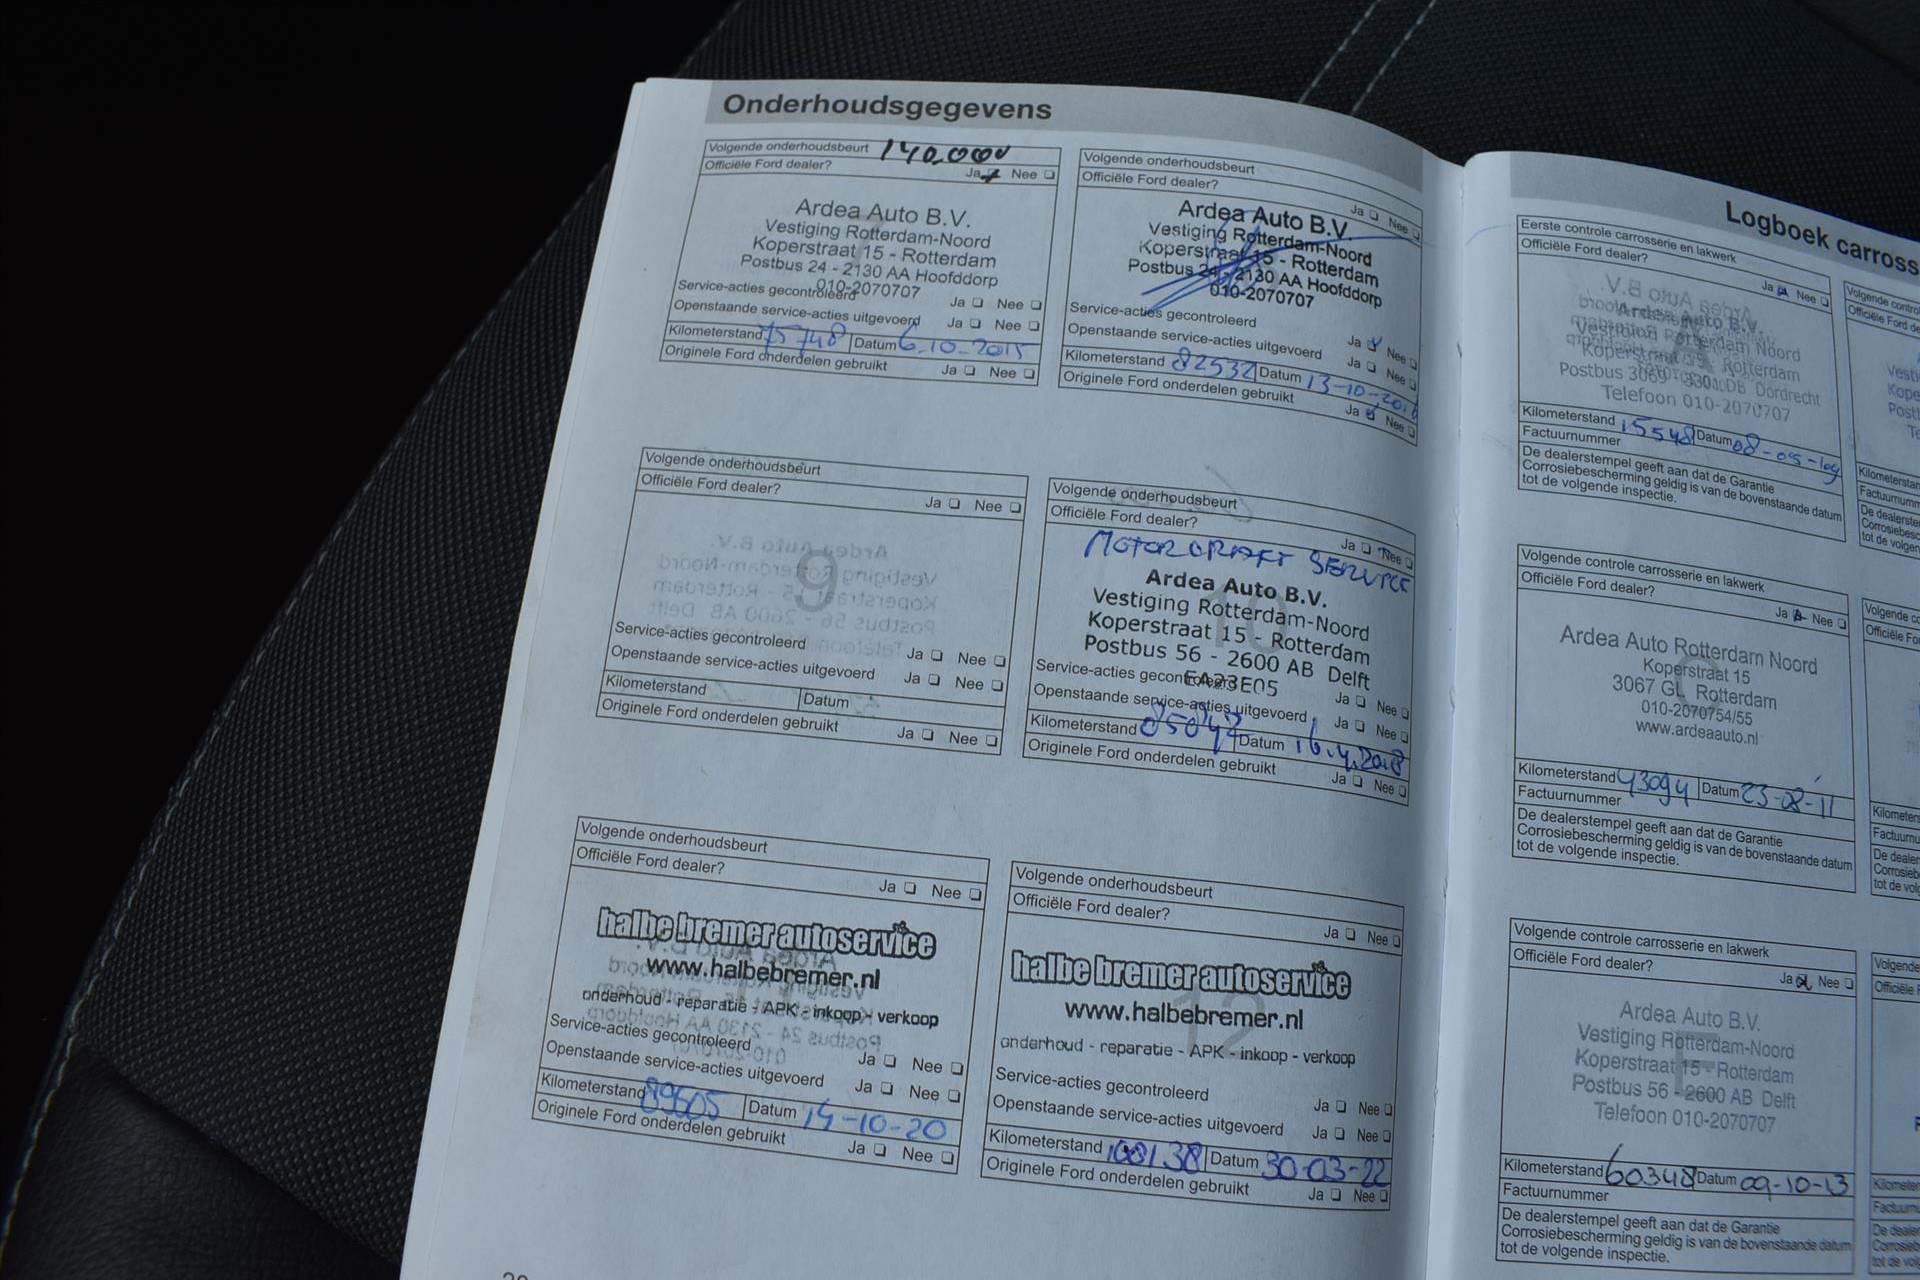 Onderhoudsgegevens
Volgende onderhoudsbeurt 140.000
Officiële Ford dealer?
Ja Nee
Ardea Auto B.V.
Vestiging Rotterdam-Noord
Koperstraat 15 - Rotterdam
Postbus 24 - 2130 AA Hoofddorp
010-2070707
Service-acties gecontroleerd Ja Nee
Openstaande service-acties uitgevoerd Ja Nee
Kilometerstand 75748 Datum 6-10-2015
Originele Ford onderdelen gebruikt Ja Nee
Volgende onderhoudsbeurt
Officiële Ford dealer?
Ja Nee
Ardea Auto B.V.
Vestiging Rotterdam-Noord
Koperstraat 15 - Rotterdam
Postbus 24 - 2130 AA Hoofddorp
010-2070707
Service-acties gecontroleerd Ja Nee
Openstaande service-acties uitgevoerd Ja Nee
Kilometerstand 82532 Datum 13-10-2016
Originele Ford onderdelen gebruikt Ja Nee
Volgende onderhoudsbeurt
Officiële Ford dealer?
Ja Nee
9
Service-acties gecontroleerd Ja Nee
Openstaande service-acties uitgevoerd Ja Nee
Kilometerstand Datum
Originele Ford onderdelen gebruikt Ja Nee
Volgende onderhoudsbeurt
Officiële Ford dealer?
Ja Nee
MOTORCRAFT SERVICE
10
Ardea Auto B.V.
Vestiging Rotterdam-Noord
Koperstraat 15 - Rotterdam
Postbus 56 - 2600 AB Delft
EA23E05
Service-acties gecontroleerd Ja Nee
Openstaande service-acties uitgevoerd Ja Nee
Kilometerstand 85847 Datum 16.4.2018
Originele Ford onderdelen gebruikt Ja Nee
Volgende onderhoudsbeurt
Officiële Ford dealer?
Ja Nee
halbe bremer autoservice
www.halbebremer.nl
onderhoud - reparatie - APK - inkoop - verkoop
Service-acties gecontroleerd Ja Nee
Openstaande service-acties uitgevoerd Ja Nee
Kilometerstand 89605 Datum 14-10-20
Originele Ford onderdelen gebruikt Ja Nee
Volgende onderhoudsbeurt
Officiële Ford dealer?
Ja Nee
halbe bremer autoservice
12
www.halbebremer.nl
onderhoud - reparatie - APK - inkoop - verkoop
Service-acties gecontroleerd Ja Nee
Openstaande service-acties uitgevoerd Ja Nee
Kilometerstand 108138 Datum 30-03-22
Originele Ford onderdelen gebruikt Ja Nee
Logboek carross
Eerste controle carrosserie en lakwerk
Officiële Ford dealer?
Ja Nee
Ardea Auto B.V.
Vestiging Rotterdam Noord
Koperstraat 15 Rotterdam
Postbus 3069 - 3301 DB Dordrecht
Telefoon 010-2070707
Kilometerstand 15548 Datum 08-05-09
Factuurnummer
De dealerstempel geeft aan dat de Garantie
Corrosiebescherming geldig is van de bovenstaande datum
tot de volgende inspectie.
Volgende controle carrosserie en lakwerk
Officiële Ford dealer?
Ja Nee
Ardea Auto Rotterdam Noord
Koperstraat 15
3067 GL Rotterdam
010-2070754/55
www.ardeaauto.nl
Kilometerstand 43094 Datum 23-08-11
Factuurnummer
De dealerstempel geeft aan dat de Garantie
Corrosiebescherming geldig is van de bovenstaande datum
tot de volgende inspectie.
Volgende controle carrosserie en lakwerk
Officiële Ford dealer?
Ja Nee
Ardea Auto B.V.
Vestiging Rotterdam-Noord
Koperstraat 15 - Rotterdam
Postbus 56 - 2600 AB Delft
Telefoon 010-2070707
Kilometerstand 60348 Datum 09-10-13
Factuurnummer
De dealerstempel geeft aan dat de Garantie
Corrosiebescherming geldig is van de bovenstaande datum
tot de volgende inspectie.